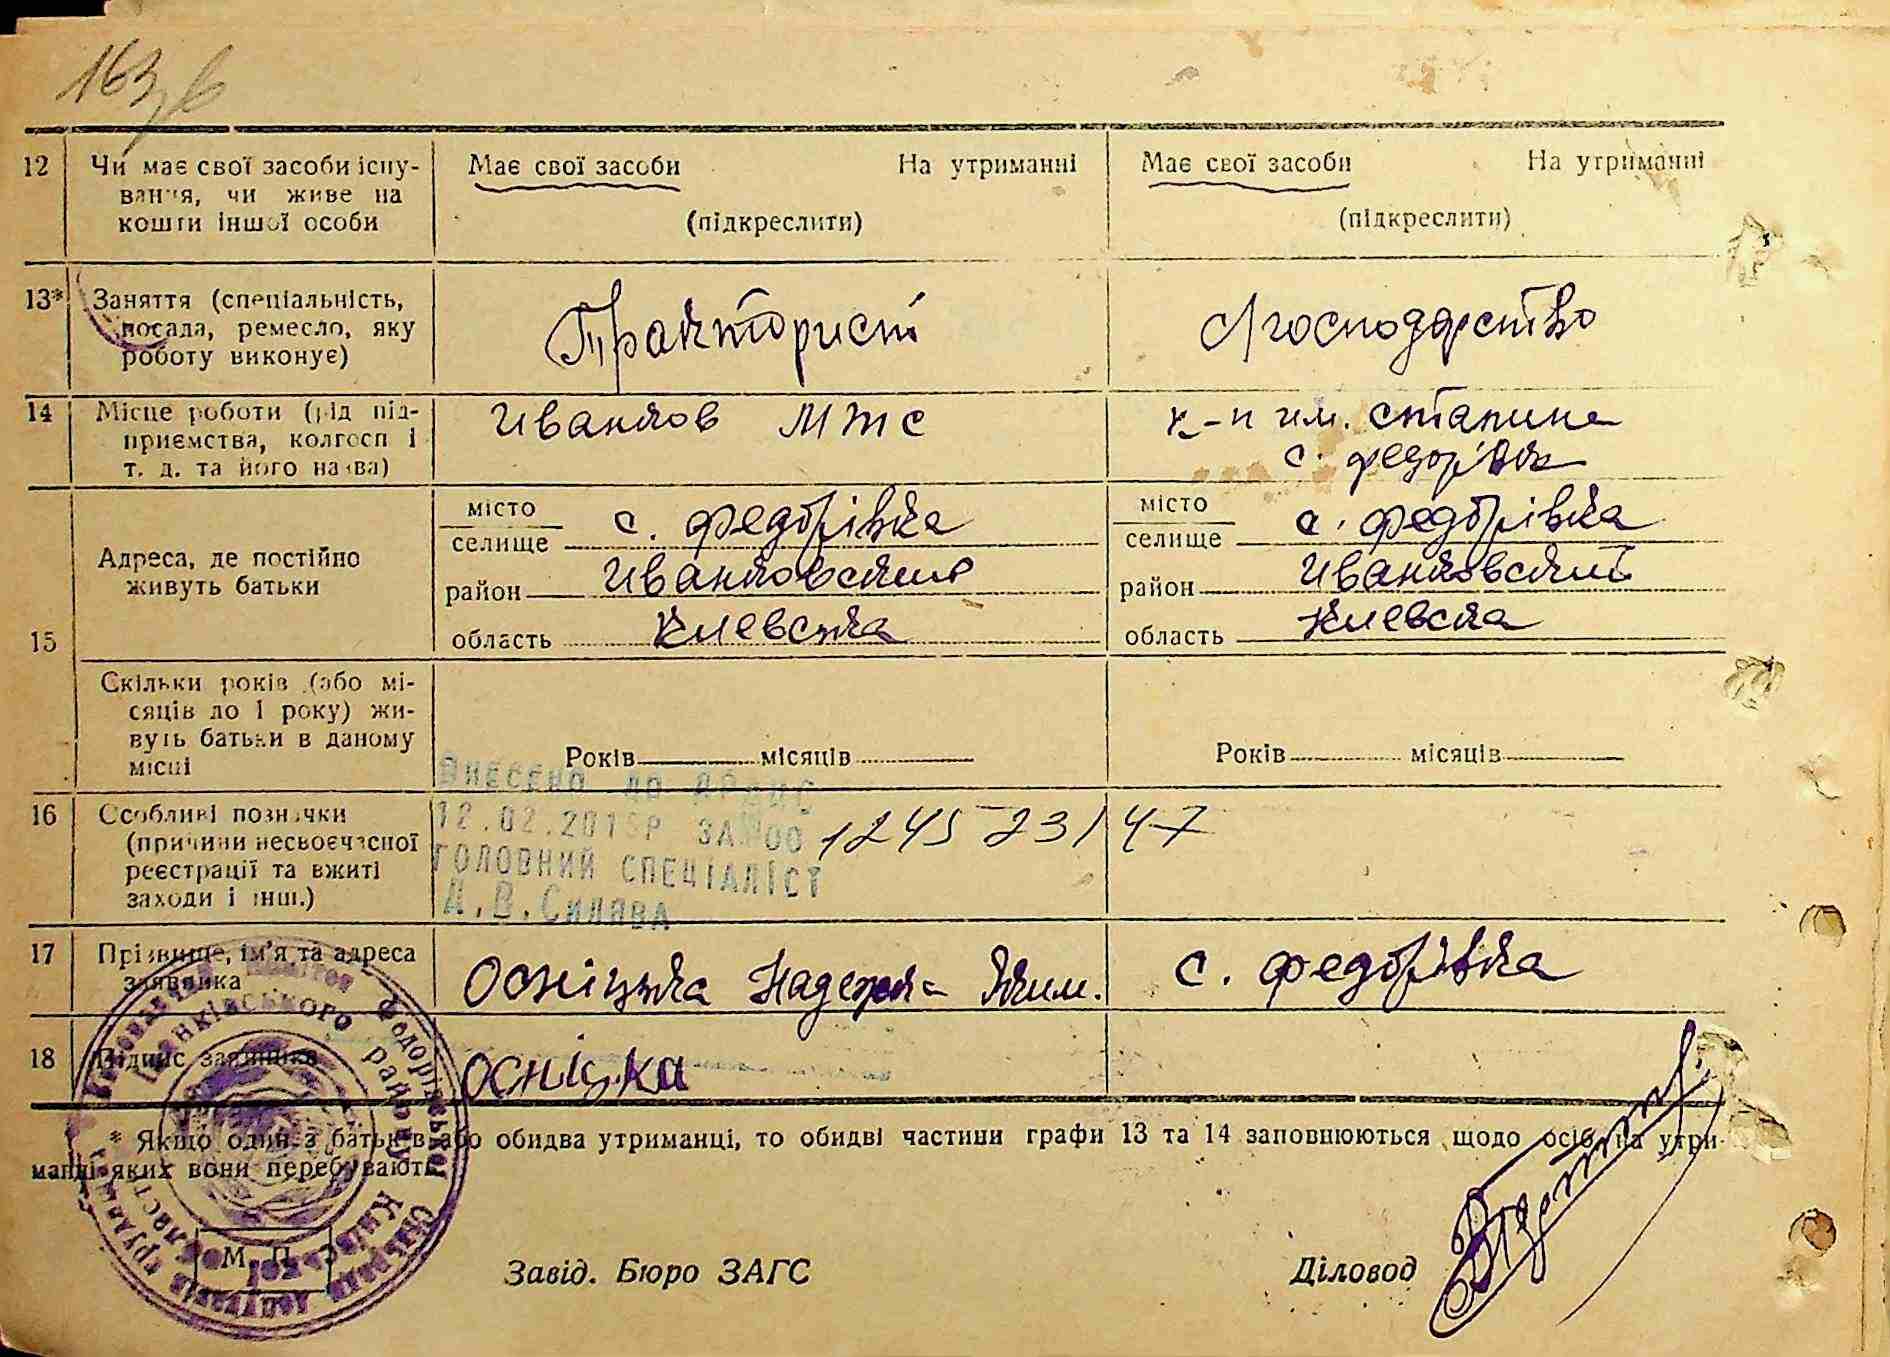 163
12 Чи має свої засоби існу-
вання, чи живе на
кошти іншої особи
Має свої засоби На утриманні
(підкреслити)
Має свої засоби На утриманні
(підкреслити)
13* Заняття (спеціальність,
посада, ремесло, яку
роботу виконує)
Тракторист
с/господарство
14 Місце роботи (рід під-
приємства, колгосп і
т. д. та його назва)
Иванков МТС
к-п им. Сталина
с. Федорівк
15 Адреса, де постійно
живуть батьки
місто
селище с. Федорівка
район Иванковский
область Киевська
місто
селище с. Федорівка
район Иванковский
область Киевска
Скільки років (або мі-
сяців до 1 року) жи-
вуть батьки в даному
місці
Років місяців
Років місяців
16 Особливі позначки
(причини несвоєчасної
реєстрації та вжиті
заходи і інш.)
ВНЕСЕНО ДО
12.02.201 Р ЗА
00 124523147
ГОЛОВНИЙ СПЕЦІАЛІСТ
17 Прізвище, ім'я та адреса
заявника
Осніцька Надежда Яким.
с. Федорівка
18 Підпис заявника
осніцка
* Якщо один з батьків або обидва утриманці, то обидві частини графи 13 та 14 заповнюються щодо осіб, на утри-
манні яких вони перебувають
Іванківського району
Федорівської Сільради депутатів трудящих
Київської області
М. П.
Завід. Бюро ЗАГС
Діловод